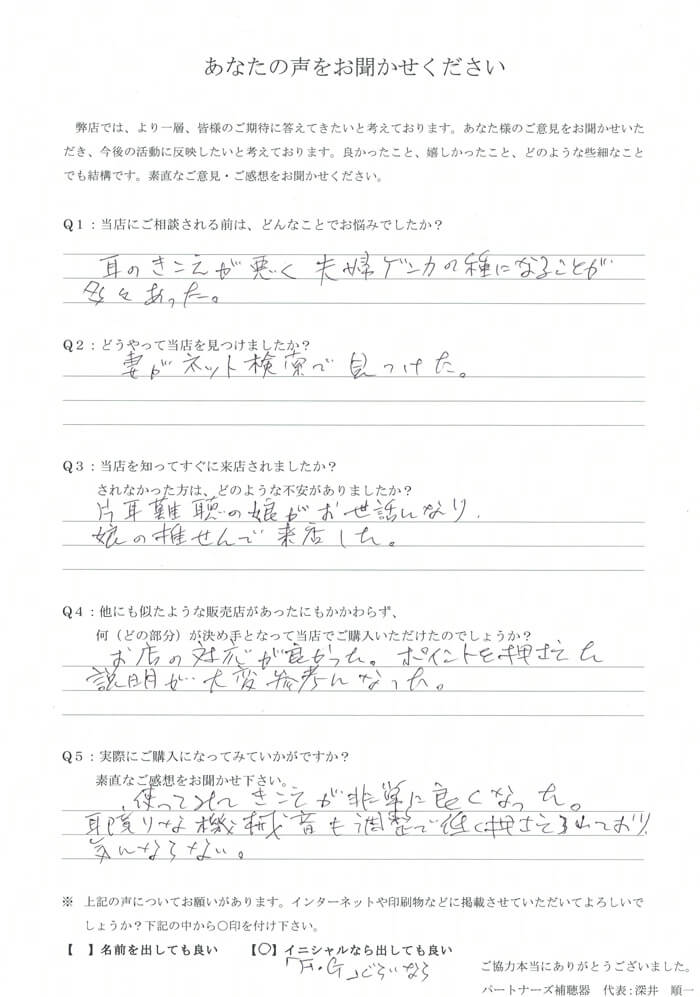 あなたの声をお聞かせください
弊店では、より一層、皆様のご期待に答えてきたいと考えております。あなた様のご意見をお聞かせいた
だき、今後の活動に反映したいと考えております。良かったこと、嬉しかったこと、どのような些細なこと
でも結構です。素直なご意見・ご感想をお聞かせください。
Q1：当店にご相談される前は、どんなことでお悩みでしたか？
耳のきこえが悪く 夫婦ゲンカの種になることが
多々あった。
Q2：どうやって当店を見つけましたか？
妻がネット検索で見つけた。
Q3：当店を知ってすぐに来店されましたか？
されなかった方は、どのような不安がありましたか？
片耳難聴の娘がお世話になり、
娘の推せんで来店した。
Q4：他にも似たような販売店があったにもかかわらず、
何（どの部分）が決め手となって当店でご購入いただけたのでしょうか？
お店の対応が良かった。ポイントを押さえた
説明が大変参考になった。
Q5：実際にご購入になってみていかがですか？
素直なご感想をお聞かせ下さい。
使ってみてきこえが非常に良くなった。
耳障りな機械音も調整で低く押さえられており
気にならない。
※ 上記の声についてお願いがあります。インターネットや印刷物などに掲載させていただいてよろしいで
しょうか？下記の中から〇印を付け下さい。
【 】名前を出しても良い 【〇】イニシャルなら出しても良い
ご協力本当にありがとうございました。
パートナーズ補聴器 代表：深井 順一